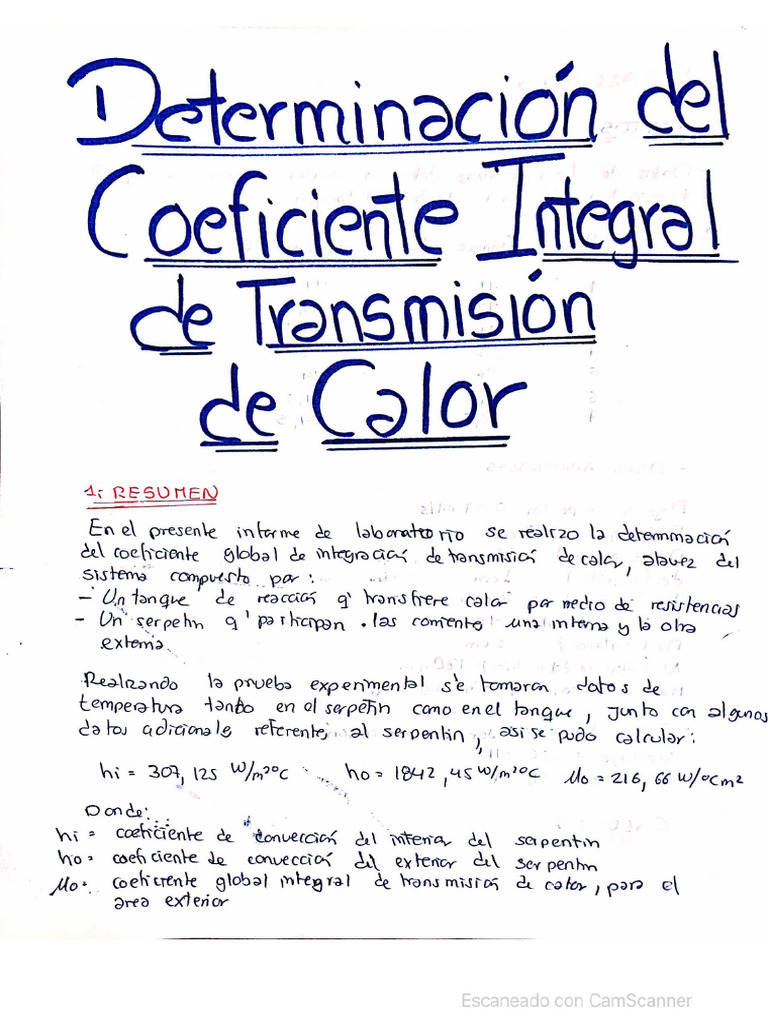 Determinación del
Coeficiente Integral
de Transmisión
de Calor
1: RESUMEN
En el presente informe de laboratorio se realizo la determinación
del coeficiente global de integración de transmisión de calor, atavez del
sistema compuesto por:
- Un tanque de reacción q' transfiere calor por medio de resistencias
- Un serpetin q' participan las corriente una interna y la otra
externa.
Realizando la prueba experimental se tomaron datos de
temperatura tanto en el serpetin como en el tanque, junto con algunos
datos adicionales referente, al serpentin, asi se pudo calcular:
hi = 307,125 W/m²°C ho = 1842,45 W/m²°C Uo = 216,66 W/°Cm²
Donde:
hi = coeficiente de convección del interior del serpentin
ho = coeficiente de convección del exterior del serpentin
Uo = coeficiente global integral de transmisión de calor, para el
area exterior
Escaneado con CamScanner